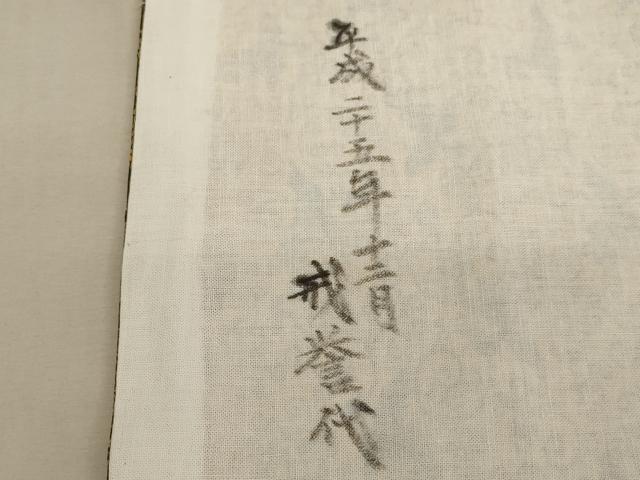 平成二十五年十二月
戒誉代